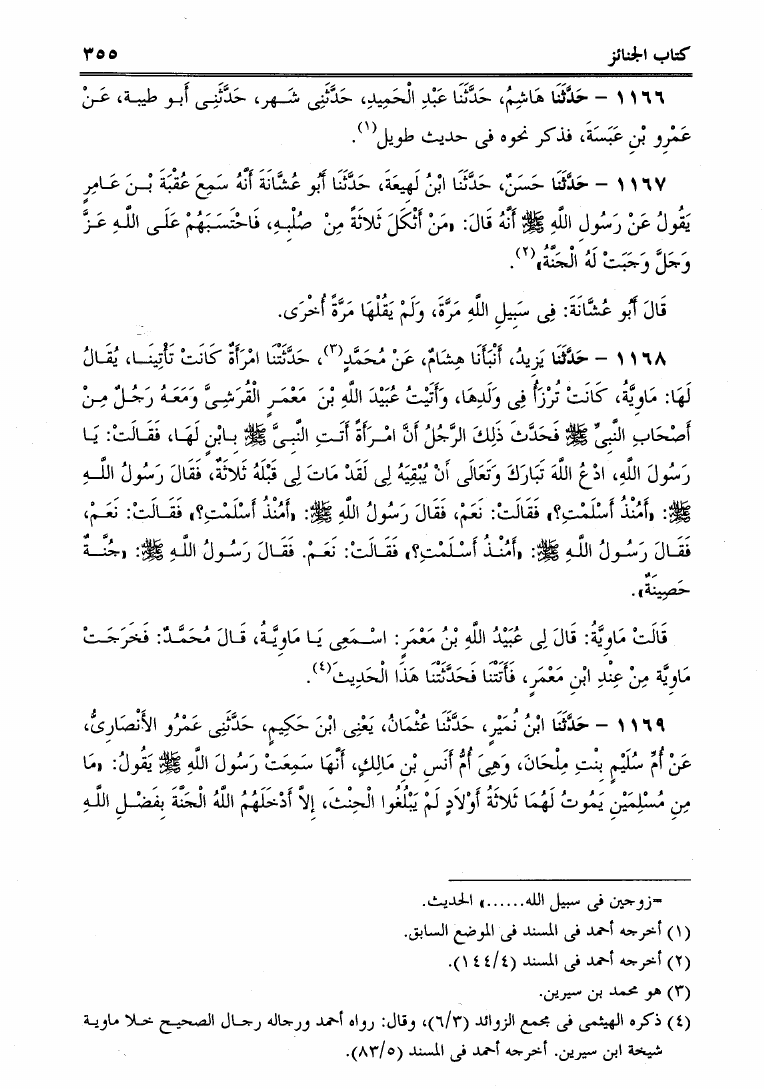 كتاب الجنائز ٣٥٥
١١٦٦ - حَدَّثَنَا هَاشِمُ، حَدَّثَنَا عَبْدِ الْحَمِيدِ، حَدَّثَنِى شَهر، حَدَّثَنِى أَبو طيبة، عَنْ
عَمْرِو بْنِ عَبَسَةَ، فذكر نحوه فى حديث طويل(١).
١١٦٧ - حَدَّثَنَا حَسَنٌ، حَدَّثَنَا ابْنُ لَهِيعَةَ، حَدَّثَنَا أَبُو عُشَّانَةَ أَنَّهُ سَمِعَ عُقْبَةَ بْنَ عَامِرٍ
يَقُولُ عَنْ رَسُولِ اللَّهِ ﷺ أَنَّهُ قَالَ: «مَنْ أَثْكَلَ ثَلاثَةً مِنْ صُلْبِهِ، فَاحْتَسَبَهُمْ عَلَى اللَّهِ عَزَّ
وَجَلَّ وَجَبَتْ لَهُ الْجَنَّةُ»(٢).
قَالَ أَبُو عُشَّانَةَ: فِى سَبِيلِ اللَّهِ مَرَّةً، وَلَمْ يَقُلْهَا مَرَّةً أُخْرَى.
١١٦٨ - حَدَّثَنَا يَزِيدُ، أَنْبَأَنَا هِشَامٌ، عَنْ مُحَمَّدٍ(٣)، حَدَّثَتْنَا امْرَأَةٌ كَانَتْ تَأْتِينَا، يُقَالُ
لَهَا: مَاوِيَّةُ، كَانَتْ تُرْزَأُ فِى وَلَدِهَا، وَأَتَيْتُ عُبَيْدَ اللَّهِ بْنَ مَعْمَرٍ الْقُرَشِىَّ وَمَعَهُ رَجُلٌ مِنْ
أَصْحَابِ النَّبِىِّ ﷺ فَحَدَّثَ ذَلِكَ الرَّجُلُ أَنَّ امْرَأَةً أَتَتِ النَّبِىَّ ﷺ بِابْنٍ لَهَا، فَقَالَتْ: يَا
رَسُولَ اللَّهِ، ادْعُ اللَّهَ تَبَارَكَ وَتَعَالَى أَنْ يُبْقِيَهُ لِى لَقَدْ مَاتَ لِى قَبْلَهُ ثَلاثَةٌ، فَقَالَ رَسُولُ اللَّهِ
ﷺ: «أَمُنْذُ أَسْلَمْتِ؟» فَقَالَتْ: نَعَمْ، فَقَالَ رَسُولُ اللَّهِ ﷺ: «أَمُنْذُ أَسْلَمْتِ؟» فَقَالَتْ: نَعَمْ،
فَقَالَ رَسُولُ اللَّهِ ﷺ: «أَمُنْذُ أَسْلَمْتِ؟» فَقَالَتْ: نَعَمْ. فَقَالَ رَسُولُ اللَّهِ ﷺ: «جُنَّةٌ
حَصِينَةٌ».
قَالَتْ مَاوِيَّةُ: قَالَ لِى عُبَيْدُ اللَّهِ بْنُ مَعْمَرٍ: اسْمَعِى يَا مَاوِيَّةُ، قَالَ مُحَمَّدٌ: فَخَرَجَتْ
مَاوِيَّةُ مِنْ عِنْدِ ابْنِ مَعْمَرٍ، فَأَتَتْنَا فَحَدَّثَتْنَا هَذَا الْحَدِيثَ(٤).
١١٦٩ - حَدَّثَنَا ابْنُ نُمَيْرٍ، حَدَّثَنَا عُثْمَانُ، يَعْنِى ابْنَ حَكِيمٍ، حَدَّثَنِى عَمْرُو الأَنْصَارِىُّ،
عَنْ أُمِّ سُلَيْمٍ بِنْتِ مِلْحَانَ، وَهِىَ أُمُّ أَنَسِ بْنِ مَالِكٍ، أَنَّهَا سَمِعَتْ رَسُولَ اللَّهِ ﷺ يَقُولُ: «مَا
مِن مُسْلِمَيْنِ يَمُوتُ لَهُمَا ثَلاثَةُ أَوْلادٍ لَمْ يَبْلُغُوا الْحِنْثَ، إِلاَّ أَدْخَلَهُمُ اللَّهُ الْجَنَّةَ بِفَضْلِ اللَّهِ
=زوجين فى سبيل الله......» الحديث.
(١) أخرجه أحمد فى المسند فى الموضع السابق.
(٢) أخرجه أحمد فى المسند (١٤٤/٤).
(٣) هو محمد بن سيرين.
(٤) ذكره الهيثمى فى مجمع الزوائد (٦/٣)، وقال: رواه أحمد ورجاله رجال الصحيح خلا ماوية
شيخة ابن سيرين. أخرجه أحمد فى المسند (٨٣/٥).